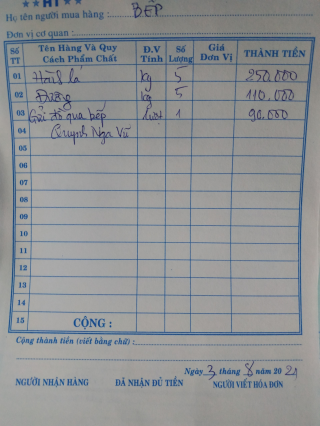 ★★HT★★
Họ tên người mua hàng : BẾP
Đơn vị cơ quan :
Số TT Tên Hàng Và Quy Cách Phẩm Chất Đ.V Tính Số Lượng Giá Đơn Vị THÀNH TIỀN
01 Hành lá kg 5 250.000
02 Đường kg 5 110.000
03 Gửi đồ qua bếp lượt 1 90.000
04 Quỳnh Nga Vũ
05
06
07
08
09
10
11
12
13
14
15 CỘNG :
Cộng thành tiền (viết bằng chữ) :
Ngày 3 tháng 8 năm 202
NGƯỜI NHẬN HÀNG ĐÃ NHẬN ĐỦ TIỀN NGƯỜI VIẾT HÓA ĐƠN